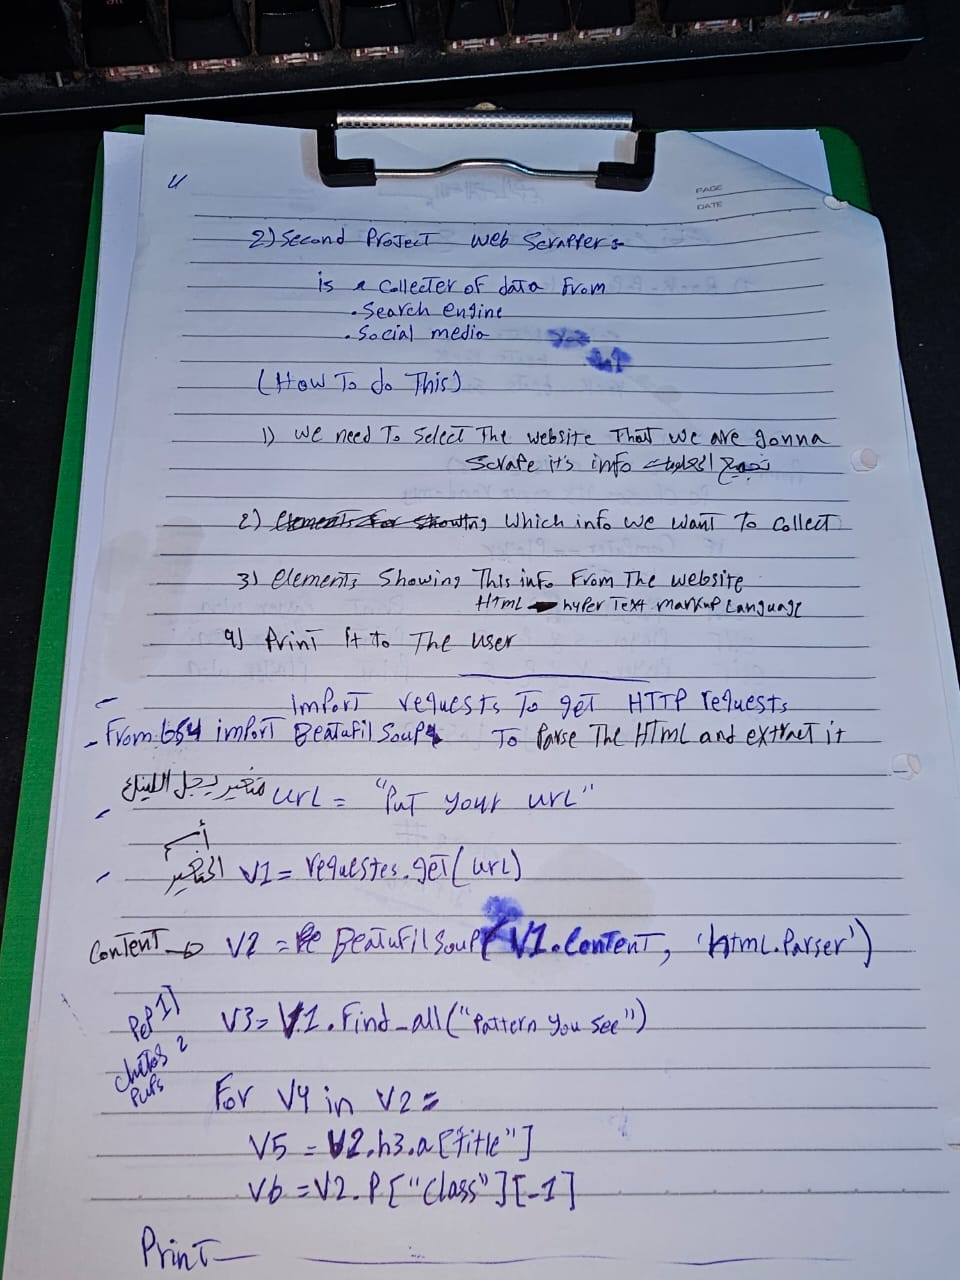 PAGE
DATE
2) Second Project web Scraffers
is a collecter of data from
. Search engine
. Social media
(How To do This)
1) we need To Select The website That we are gonna
Scrafe it's info تجميع المعلومات
2) Elements For Showing Which info we want To collect
3) elements Showing This info From The website
HTML → hyper Text markup Language
4) Print it to The user
- Import requests To get HTTP requests
- From bs4 import Beatufil Soup To Parse The HTML and extract it
متغير يدخل اللينك url = "Put your url"
- أسم
المتغير V1 = requestes.get(url)
Content → V2 = Beatufil Soup(V1.content, 'html.Parser')
V3 = V1.Find_all("Pattern you see")
For V4 in V2:
V5 = V2.h3.a["title"]
V6 = V2.P["class"][-1]
Print